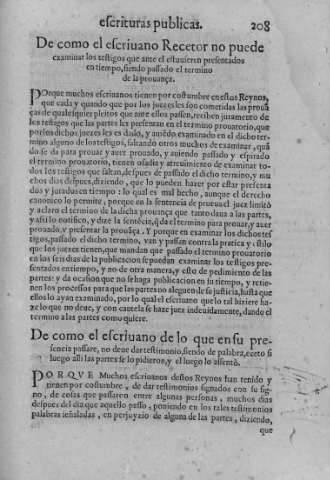 escrituras publicas. 208
De como el escriuano Recetor no puede
examinar los testigos que ante el estuuieren presentados
en tiempo, siendo passado el termino
de la prouança.
POrque muchos escriuanos tienen por costumbre en estos Reynos,
que cada y quando que por los juezes les son cometidas las prouã
ças de qualesquier pleitos que ante ellos passen, reciben juramento de
los testigos que las partes les presentan en el termino prouatorio, que
por los dichos juezes les es dado, y auiẽdo examinado en el dicho ter
mino alguno de los testigos, faltando otros muchos de examinar, quã
do se da para prouar y auer prouado, y auiendo passado y espirado
el termino prouatorio, tienen osadia y atreuimiento de examinar to-
dos los testigos que faltan, despues de passado el dicho termino, y mu
chos dias despues, diziendo, que lo pueden hazer por estar presenta
dos y jurados en tiempo: lo qual es mal hecho, aunque el derecho
canonico lo permite, porque en la sentencia de prueua el juez limitò
y aclarò el termino de la dicha prouança que tanto daua a las partes,
y assi lo notificò, y dize la sentẽcia, q̃ da el termino para prouar, y auer
prouado, y presentar la prouãça. Y porque en examinar los dichos tes
tigos, passado el dicho termino, van y passan contra la pratica y estilo
que los juezes tienen, que mandan que passado el termino prouatorio
en los seis dias de la publicacion se puedan examinar los testigos pre-
sentados en tiempo, y no de otra manera, y esto de pedimiento de las
partes: y da ocasion que no se haga publicacion en su tiempo, y retie-
nen los processos para que las partes no aleguen de su justicia, hasta que
ellos lo ayan examinado, por lo qual el escriuano que lo tal hiziere ha-
ze lo que no deue, y con cautela se haze juez indeuidamente, dando el
termino a las partes como quiere.
De como el escriuano de lo que en su pre-
sencia passare, no deue dar testimonio, siendo de palabra, eceto si
luego alli las partes se lo pidieron, y el luego lo assentò.
PORQVE Muchos escriuanos destos Reynos han tenido y
tienen por costumbre, de dar testimonios signados con su sig-
no, de cosas que passaron entre algunas personas, muchos dias
despues del dia que aquello passò, poniendo en los tales testimonios
palabras señaladas, en perjuyzio de alguna de las partes, diziendo,
que